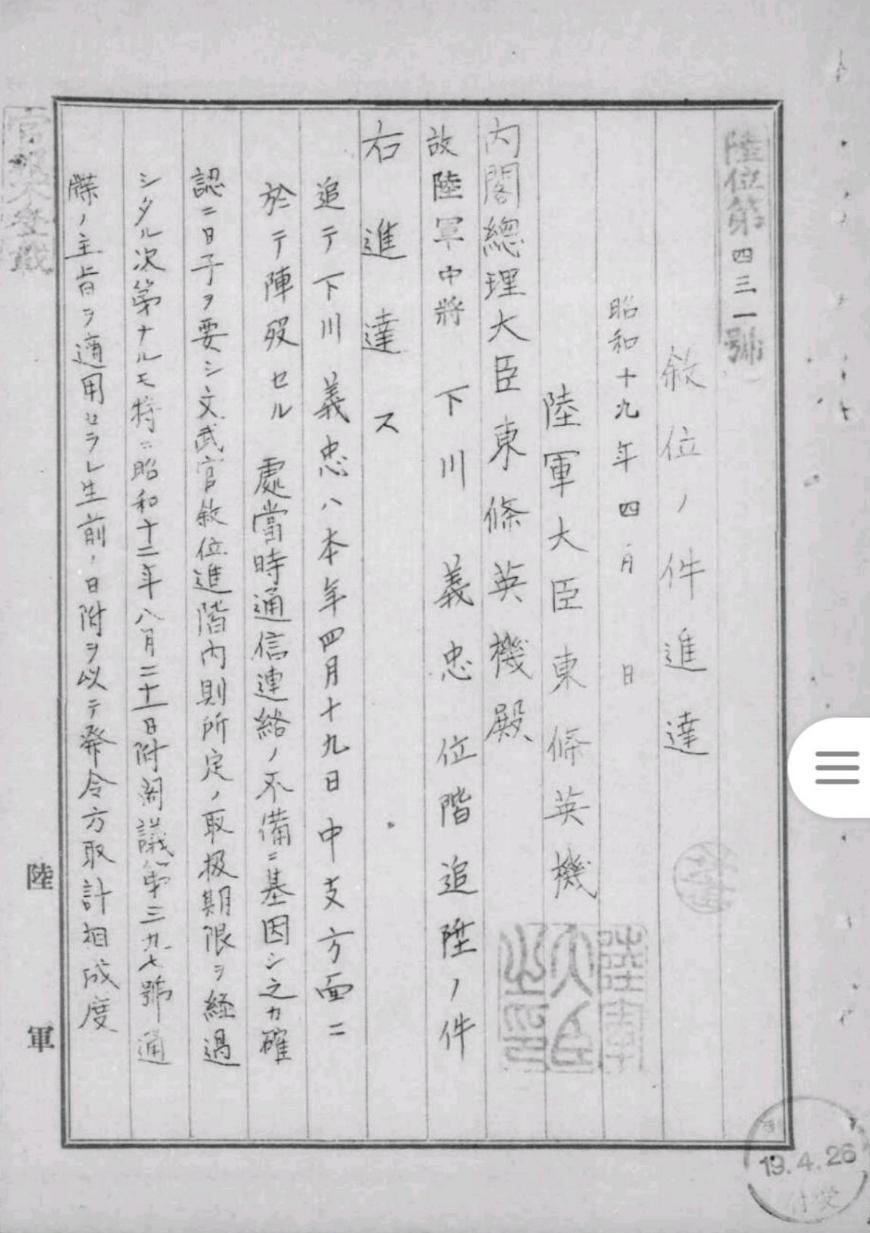 陸位第四三一號
敘位ノ件進達
昭和十九年四月　日
陸軍大臣東條英機
陸軍大臣之印
內閣總理大臣東條英機殿
故陸軍中將　下川義忠位階追陞ノ件
右進達ス
追テ下川義忠ハ本年四月十九日中支方面ニ
於テ陣歿セル處當時通信連絡ノ不備ニ基因シ之カ確
認ニ日子ヲ要シ文武官敘位進階內則所定ノ取扱期限ヲ経過
シタル次第ナルモ特ニ昭和十二年八月二十一日附閣議第三九七號通
牒ノ主旨ヲ適用セラレ生前ノ日附ヲ以テ発令方取計相成度
官報不登載
陸軍
19.4.26
受付